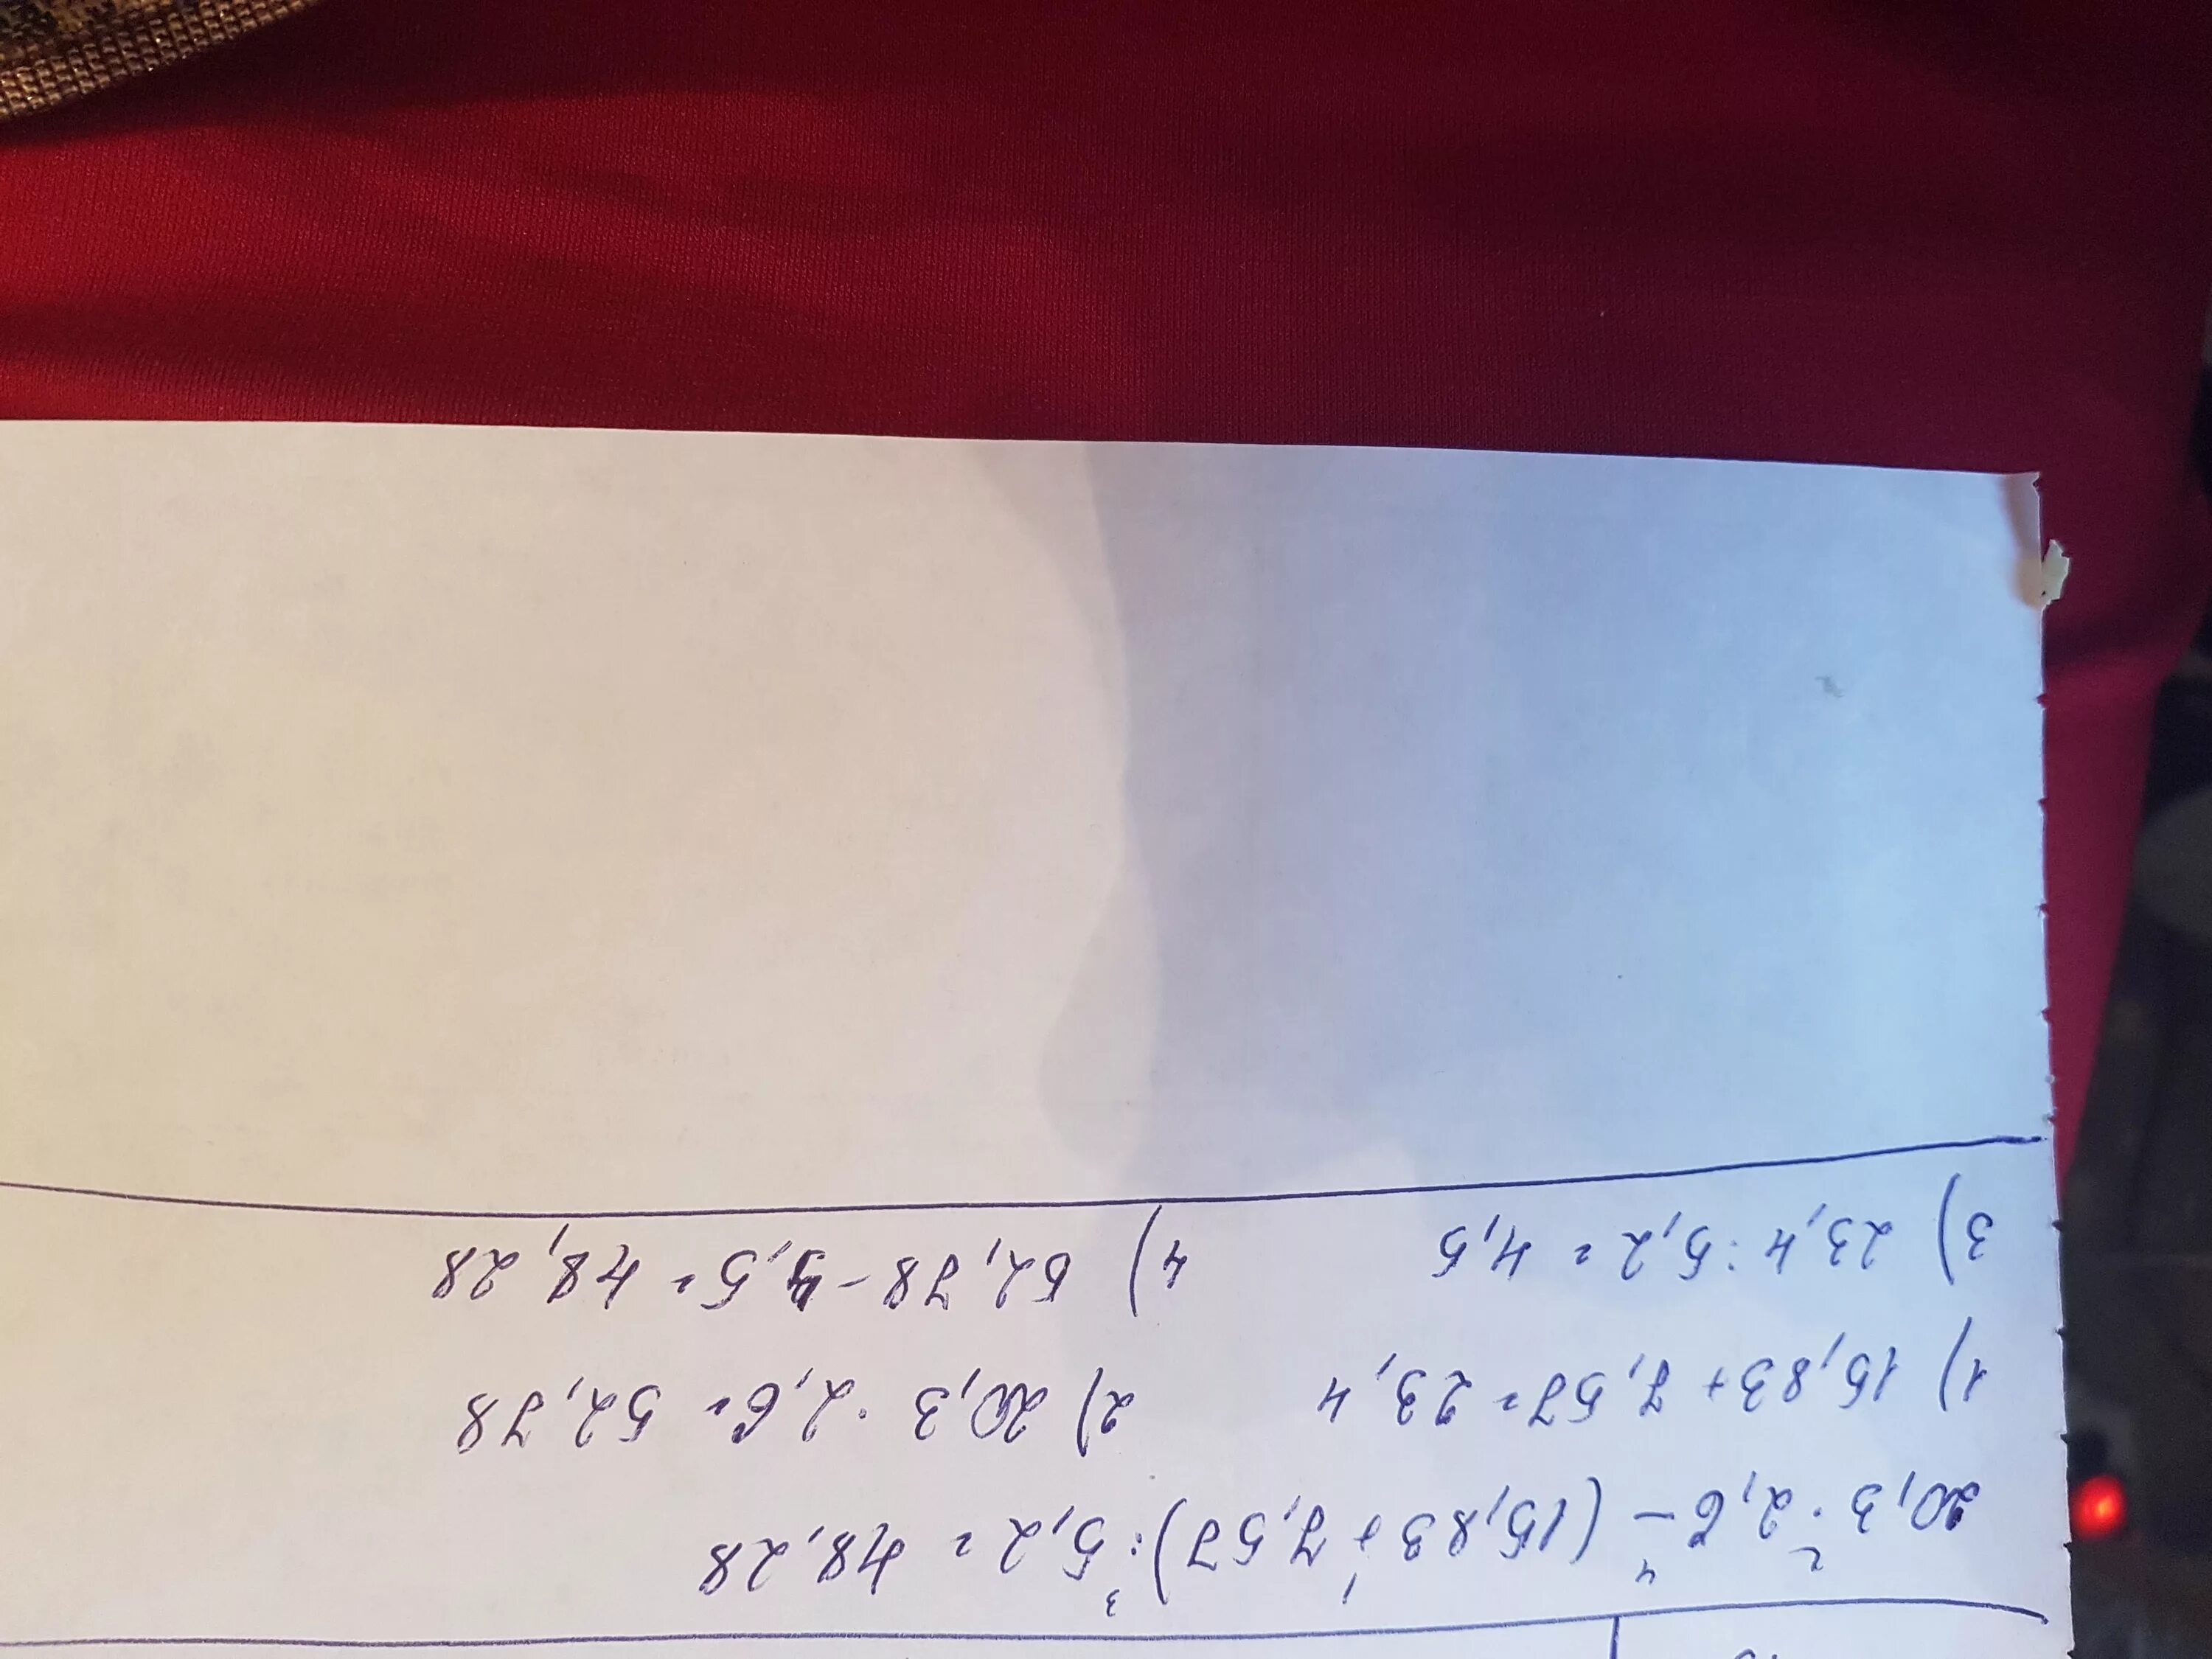 20,3 · 2,6 - (15,83 + 7,57) : 5,2 = 48,28
2 4 1 3
1) 15,83 + 7,57 = 23,4 2) 20,3 · 2,6 = 52,78
3) 23,4 : 5,2 = 4,5 4) 52,78 - 4,5 = 48,28